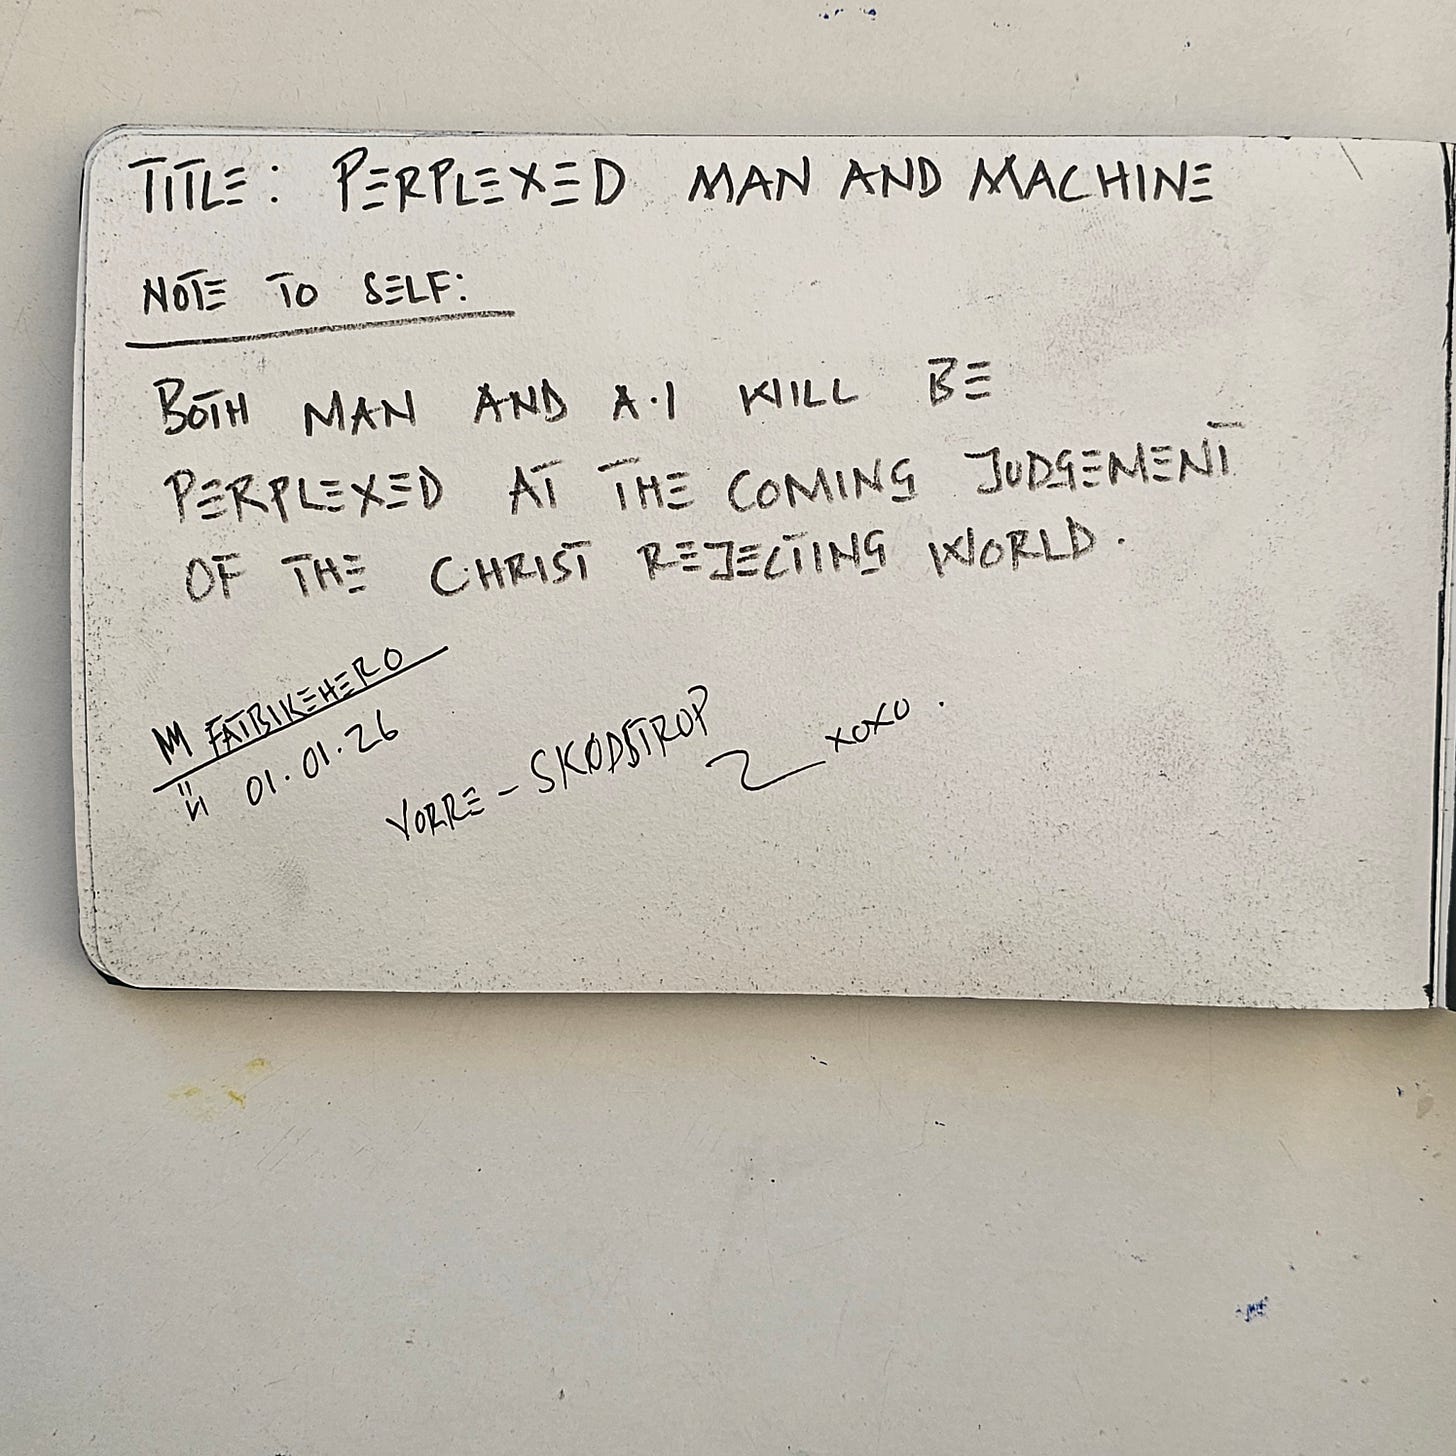 TITLE: PERPLEXED MAN AND MACHINE
NOTE TO SELF:
BOTH MAN AND A.I WILL BE
PERPLEXED AT THE COMING JUDGEMENT
OF THE CHRIST REJECTING WORLD.
FATBIKEHERO
01.01.26
VORRE - SKØDSTRUP
XOXO.